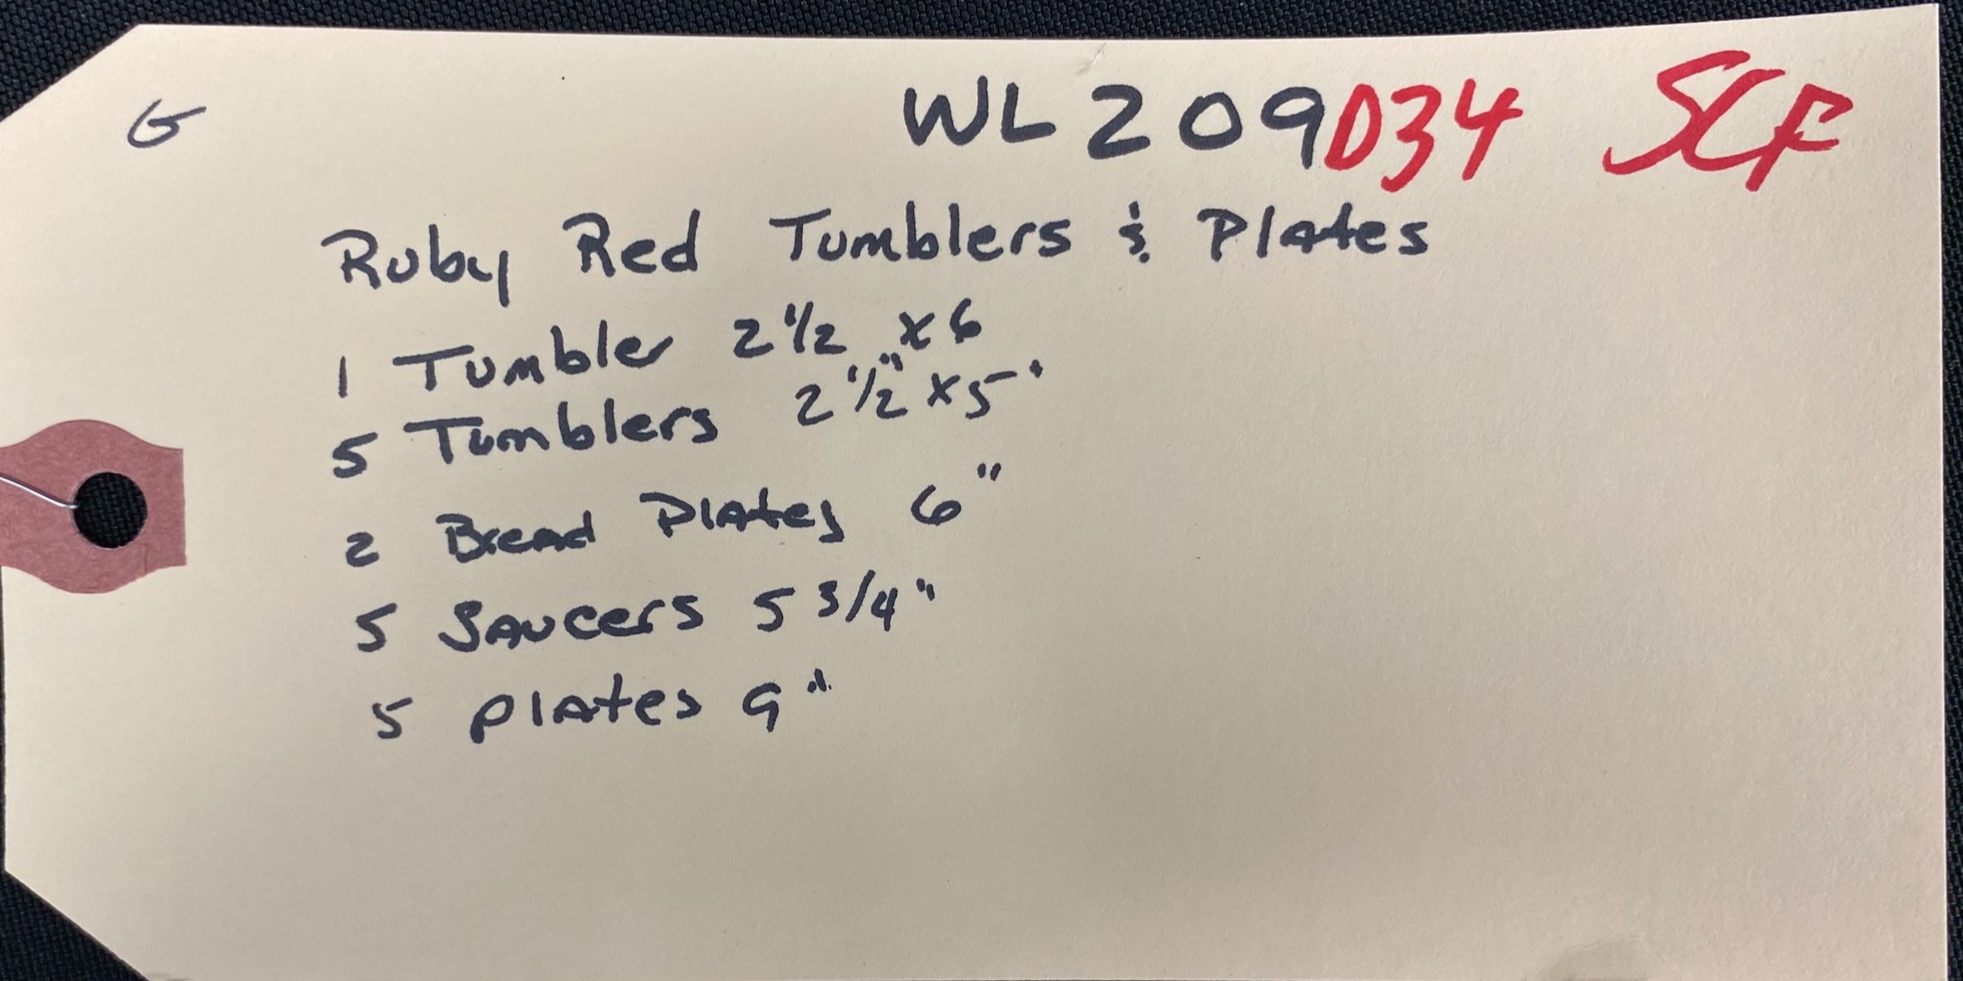 G WL 209D34 SCF
Ruby Red Tumblers & Plates
1 Tumbler 2 1/2" x 6
5 Tumblers 2 1/2" x 5"
2 Bread Plates 6"
5 Saucers 5 3/4"
5 plates 9"